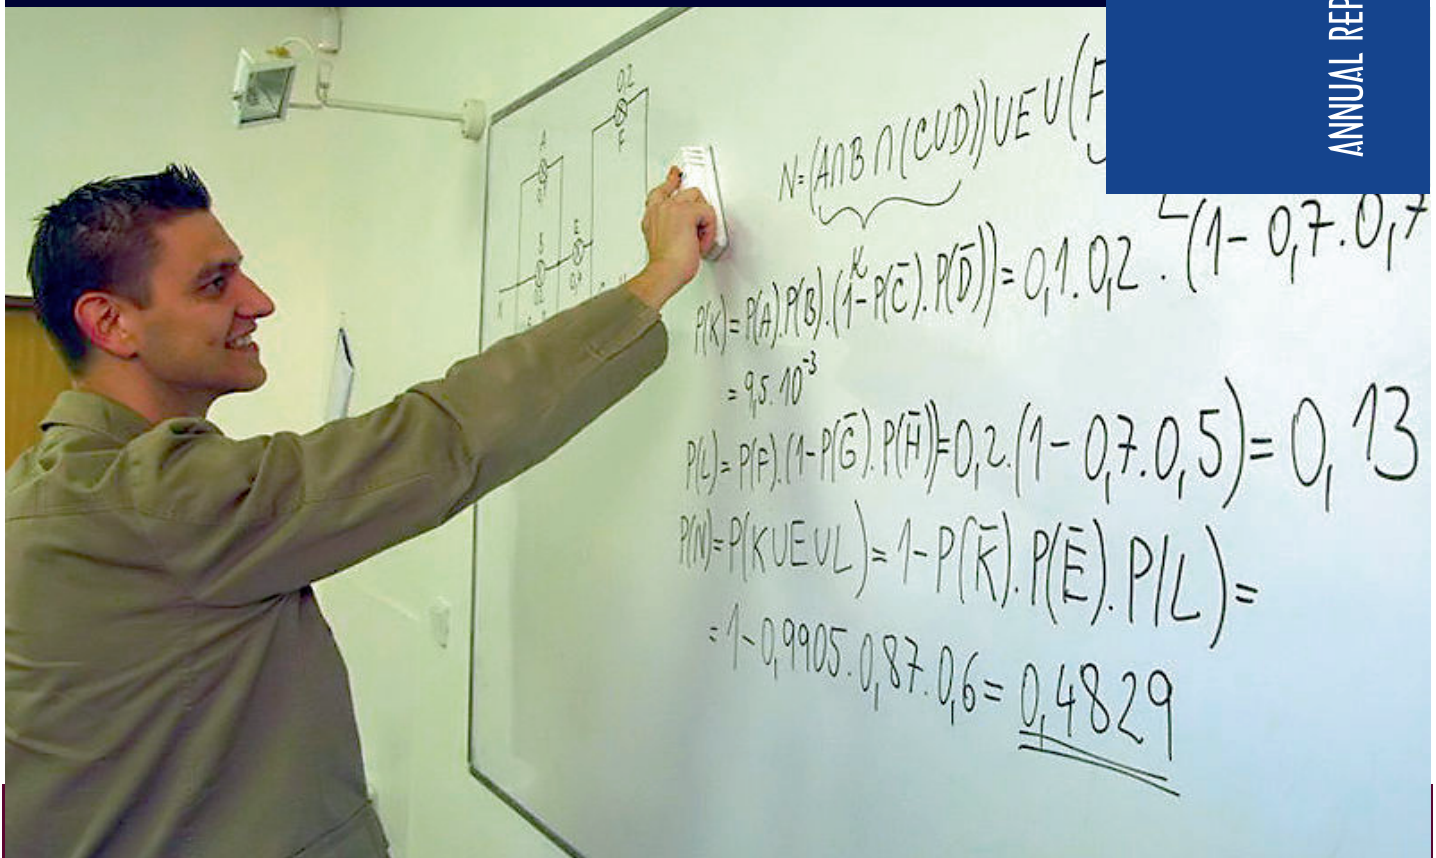 ANNUAL REP
0,2
F
A
B
E
N=(A∩B∩(C∪D))∪E∪(F
K
P(K)=P(A).P(B).(1-P(C̄).P(D̄))=0,1.0,2.(1-0,7.0,7
=9,5.10⁻³
P(L)=P(F).(1-P(Ḡ).P(H̄))=0,2.(1-0,7.0,5)=0,13
P(N)=P(K∪E∪L)=1-P(K̄).P(Ē).P(L)=
=1-0,9905.0,87.0,6=0,4829